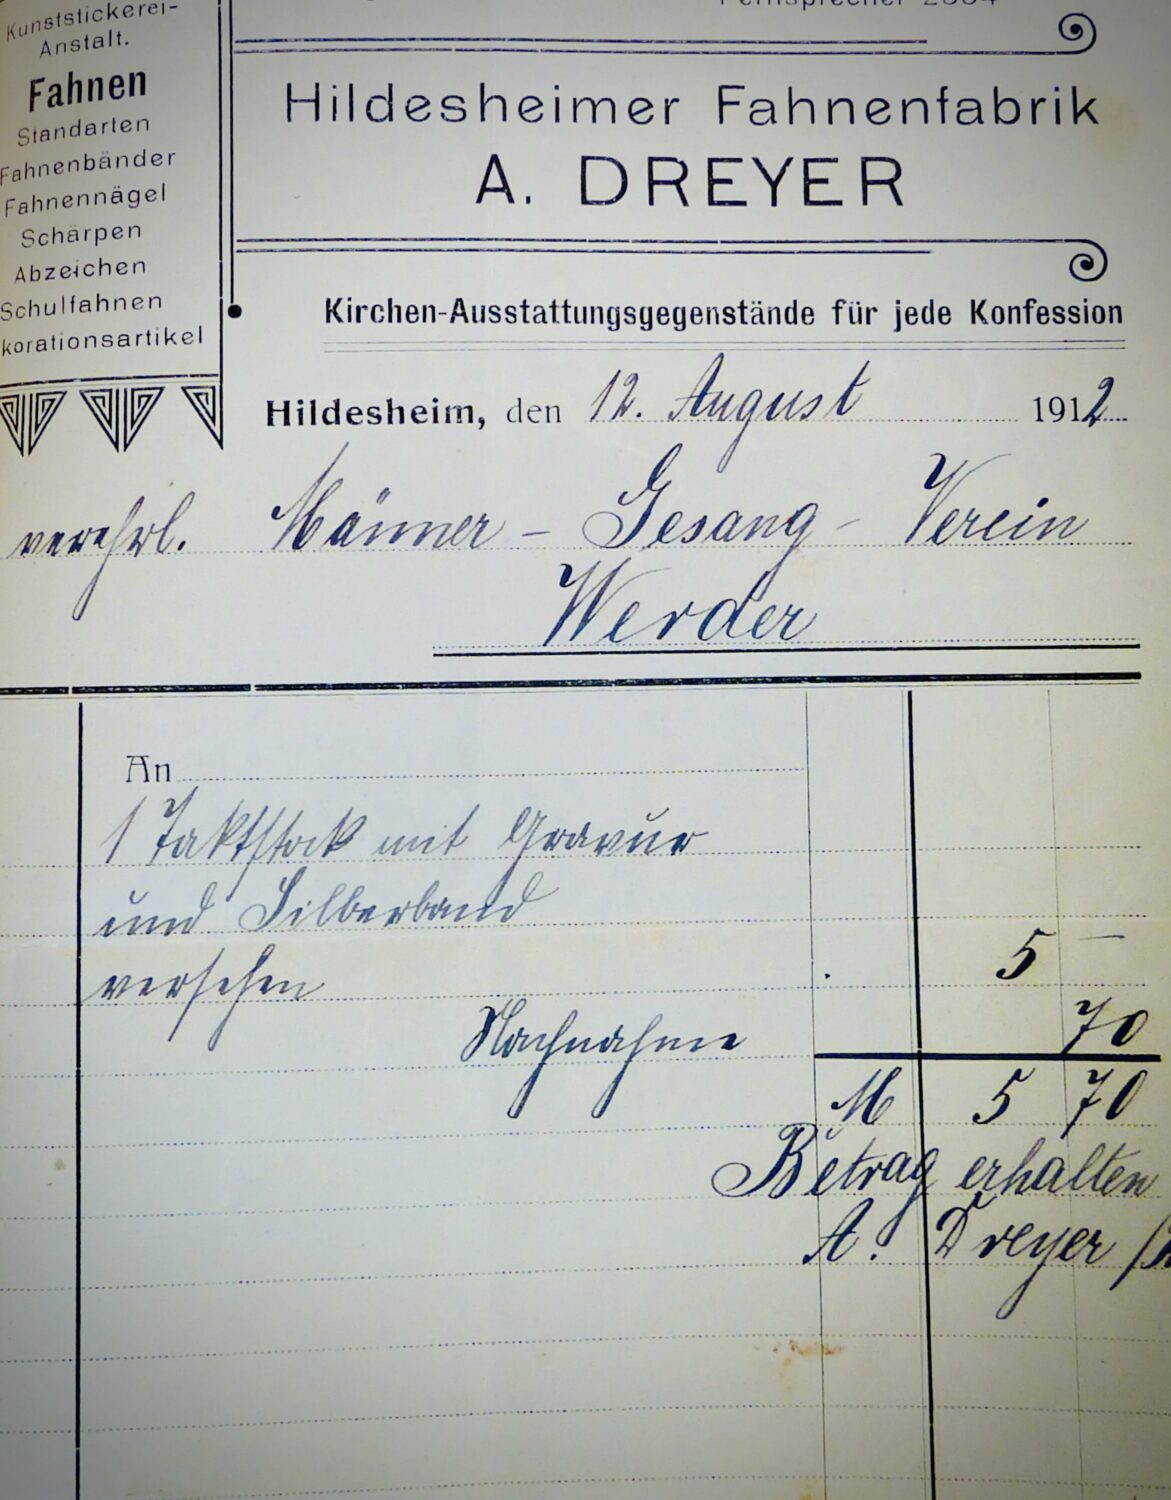 Kunststickerei-
Anstalt.
Fahnen
Standarten
Fahnenbänder
Fahnennägel
Schärpen
Abzeichen
Schulfahnen
korationsartikel
Fernsprecher 2664
Hildesheimer Fahnenfabrik
A. DREYER
Kirchen-Ausstattungsgegenstände für jede Konfession
Hildesheim, den 12. August 1912
verehrl. Männer - Gesang - Verein
Werder
An
1 Taktstock mit Gravur
und Silberband
versehen 5 —
Nachnahme 70
M 5 70
Betrag erhalten
A. Dreyer